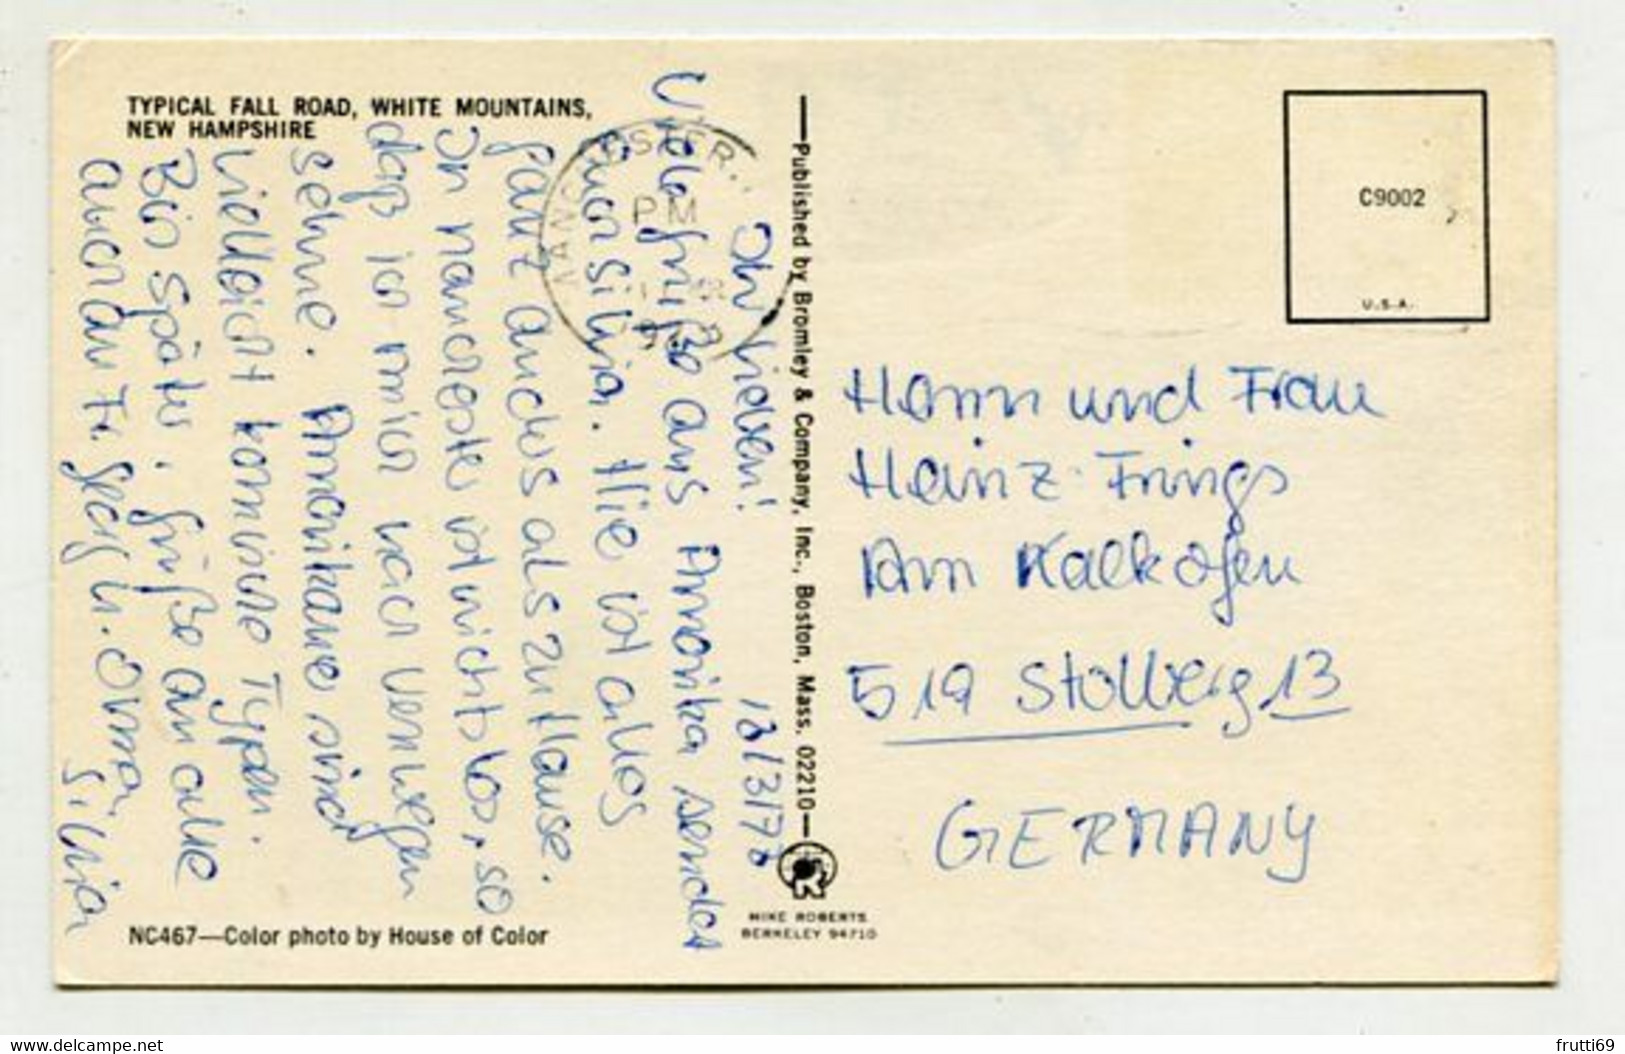 TYPICAL FALL ROAD, WHITE MOUNTAINS,
NEW HAMPSHIRE
13/3/78
Ihr Lieben!
Viele Grüße aus Amerika sendet
Euch Silvia. Hie ist alles
ganz anders als zu Hause.
In manchester ist nichts los, so
daß ich mich nach
sehne. Amerikaner sind
vielleicht komische Typen.
Bis später, Grüße an alle
auch an Fr. Georg u. Oma,
Silvia
NC467—Color photo by House of Color
PM
—Published by Bromley & Company, Inc., Boston, Mass. 02210—
MIKE ROBERTS
BERKELEY 94710
C9002
U.S.A.
Herrn und Frau
Heinz Frings
Am Kalkofen
519 Stolberg 13
GERMANY
delcampe.net
frutti69